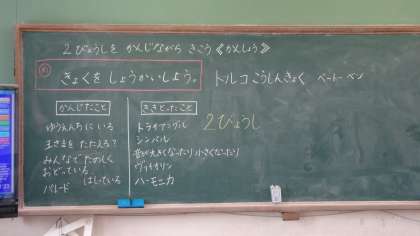 2びょうしを かんじながら きこう《かんしょう》
め きょくを しょうかいしよう。 トルコこうしんきょく ベートーベン
かんじたこと
ゆうえんちにいる
王さまを たたえる?
みんなでたのしく
おどっている
パレード はしっている
ききとったこと
トライアングル 2びょうし
シンバル
音が大きくなったり小さくなったり
ヴァイオリン
ハーモニカ